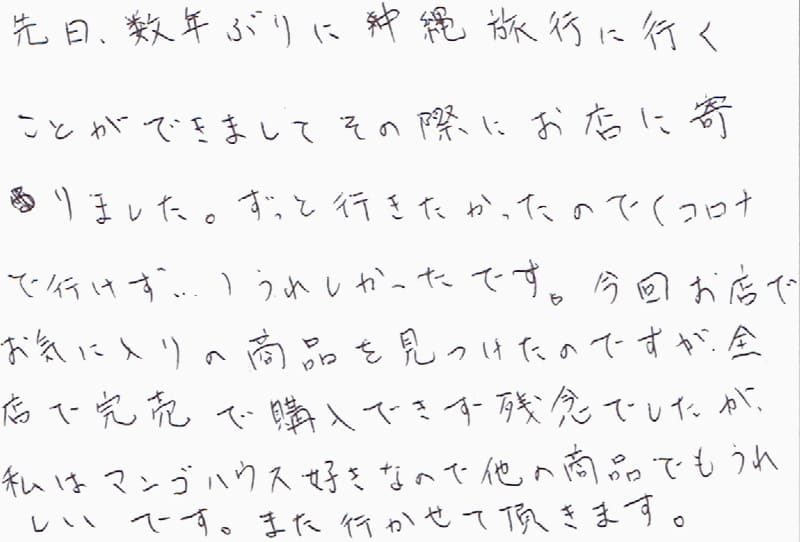 先日、数年ぶりに沖縄旅行に行く
ことができましてその際にお店に寄
りました。ずっと行きたかったので(コロナ
で行けず…)うれしかったです。今回お店で
お気に入りの商品を見つけたのですが、全
店で完売で購入できず残念でしたが、
私はマンゴハウス好きなので他の商品でもうれ
しいです。また行かせて頂きます。